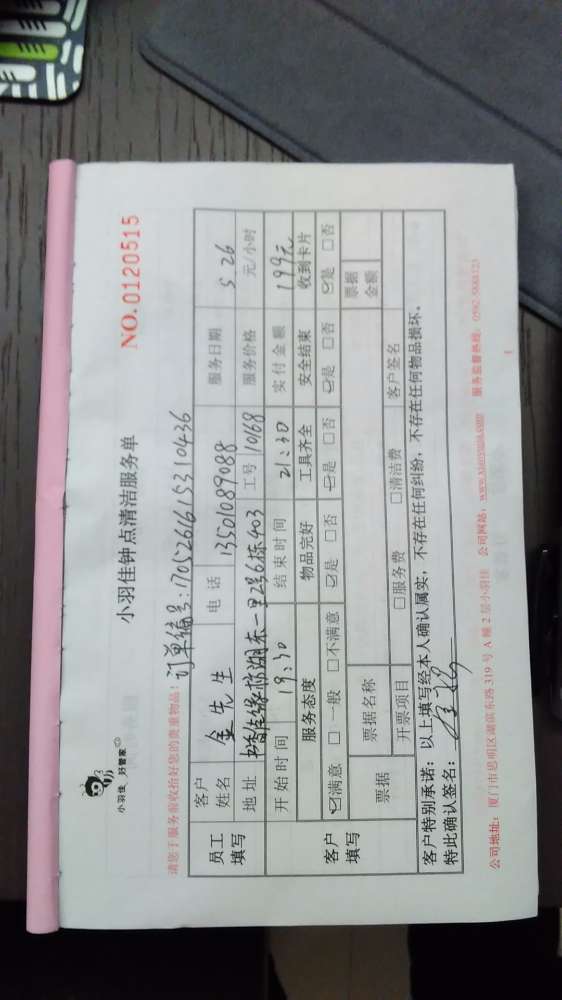 小羽佳 好管家
小羽佳钟点清洁服务单
NO.0120515
请您于服务前收拾好您的贵重物品！
订单编号：1705261615310436
员工填写
客户姓名 金先生 电话 13501089088 服务日期 5.26
地址 湖东一里2号6栋403 工号 10168 服务价格 元/小时
客户填写
开始时间 19:30 结束时间 21:30 实付金额 199元
服务态度 物品完好 工具齐全 安全结束 收到卡片
☑满意 □一般 □不满意 ☑是 □否 ☑是 □否 ☑是 □否 ☑是 □否
票据 票据名称 票据金额
开票项目 □服务费 □清洁费 客户签名
客户特别承诺：以上填写经本人确认属实，不存在任何纠纷，不存在任何物品损坏。
特此确认签名：
公司地址：厦门市思明区湖滨东路319号A幢2层小羽佳 公司网站：www.xiaoyujia.com 服务监督热线：0592-5088123